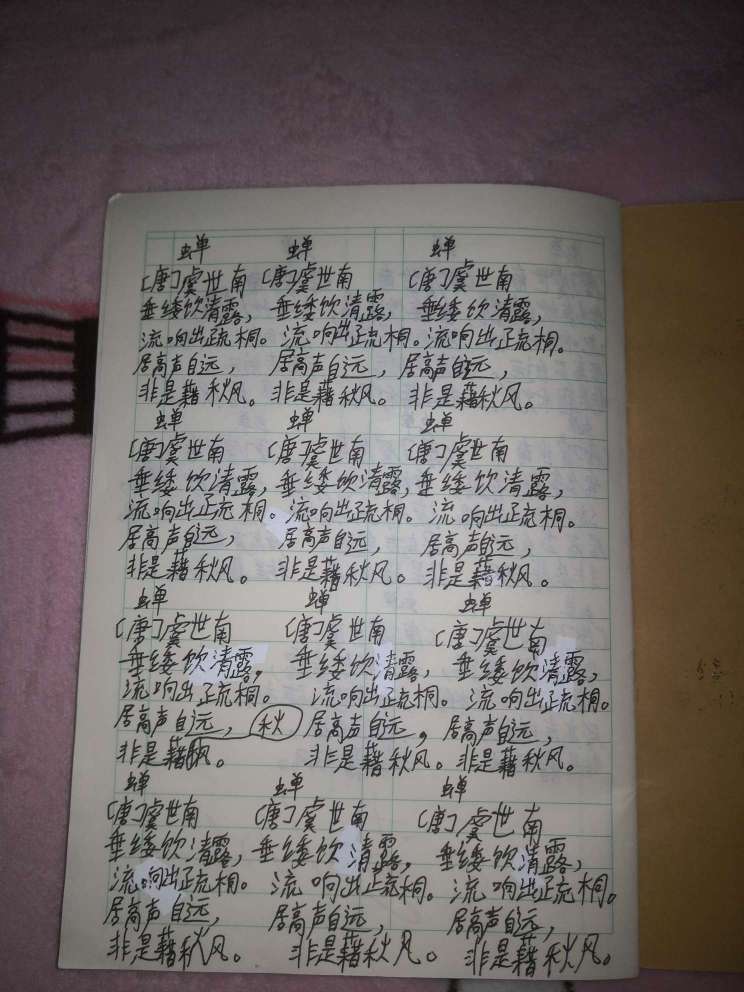 蝉 蝉 蝉
〔唐〕虞世南 〔唐〕虞世南 〔唐〕虞世南
垂緌饮清露， 垂緌饮清露， 垂緌饮清露，
流响出疏桐。 流响出疏桐。 流响出疏桐。
居高声自远， 居高声自远， 居高声自远，
非是藉秋风。 非是藉秋风。 非是藉秋风。
蝉 蝉 蝉
〔唐〕虞世南 〔唐〕虞世南 〔唐〕虞世南
垂緌饮清露， 垂緌饮清露， 垂緌饮清露，
流响出疏桐。 流响出疏桐。 流响出疏桐。
居高声自远， 居高声自远， 居高声自远，
非是藉秋风。 非是藉秋风。 非是藉秋风。
蝉 蝉 蝉
〔唐〕虞世南 〔唐〕虞世南 〔唐〕虞世南
垂緌饮清露， 垂緌饮清露， 垂緌饮清露，
流响出疏桐。 流响出疏桐。 流响出疏桐。
居高声自远， 秋 居高声自远， 居高声自远，
非是藉风。 非是藉秋风。 非是藉秋风。
蝉 蝉 蝉
〔唐〕虞世南 〔唐〕虞世南 〔唐〕虞世南
垂緌饮清露， 垂緌饮清露， 垂緌饮清露，
流响出疏桐。 流响出疏桐。 流响出疏桐。
居高声自远， 居高声自远， 居高声自远，
非是藉秋风。 非是藉秋风。 非是藉秋风。